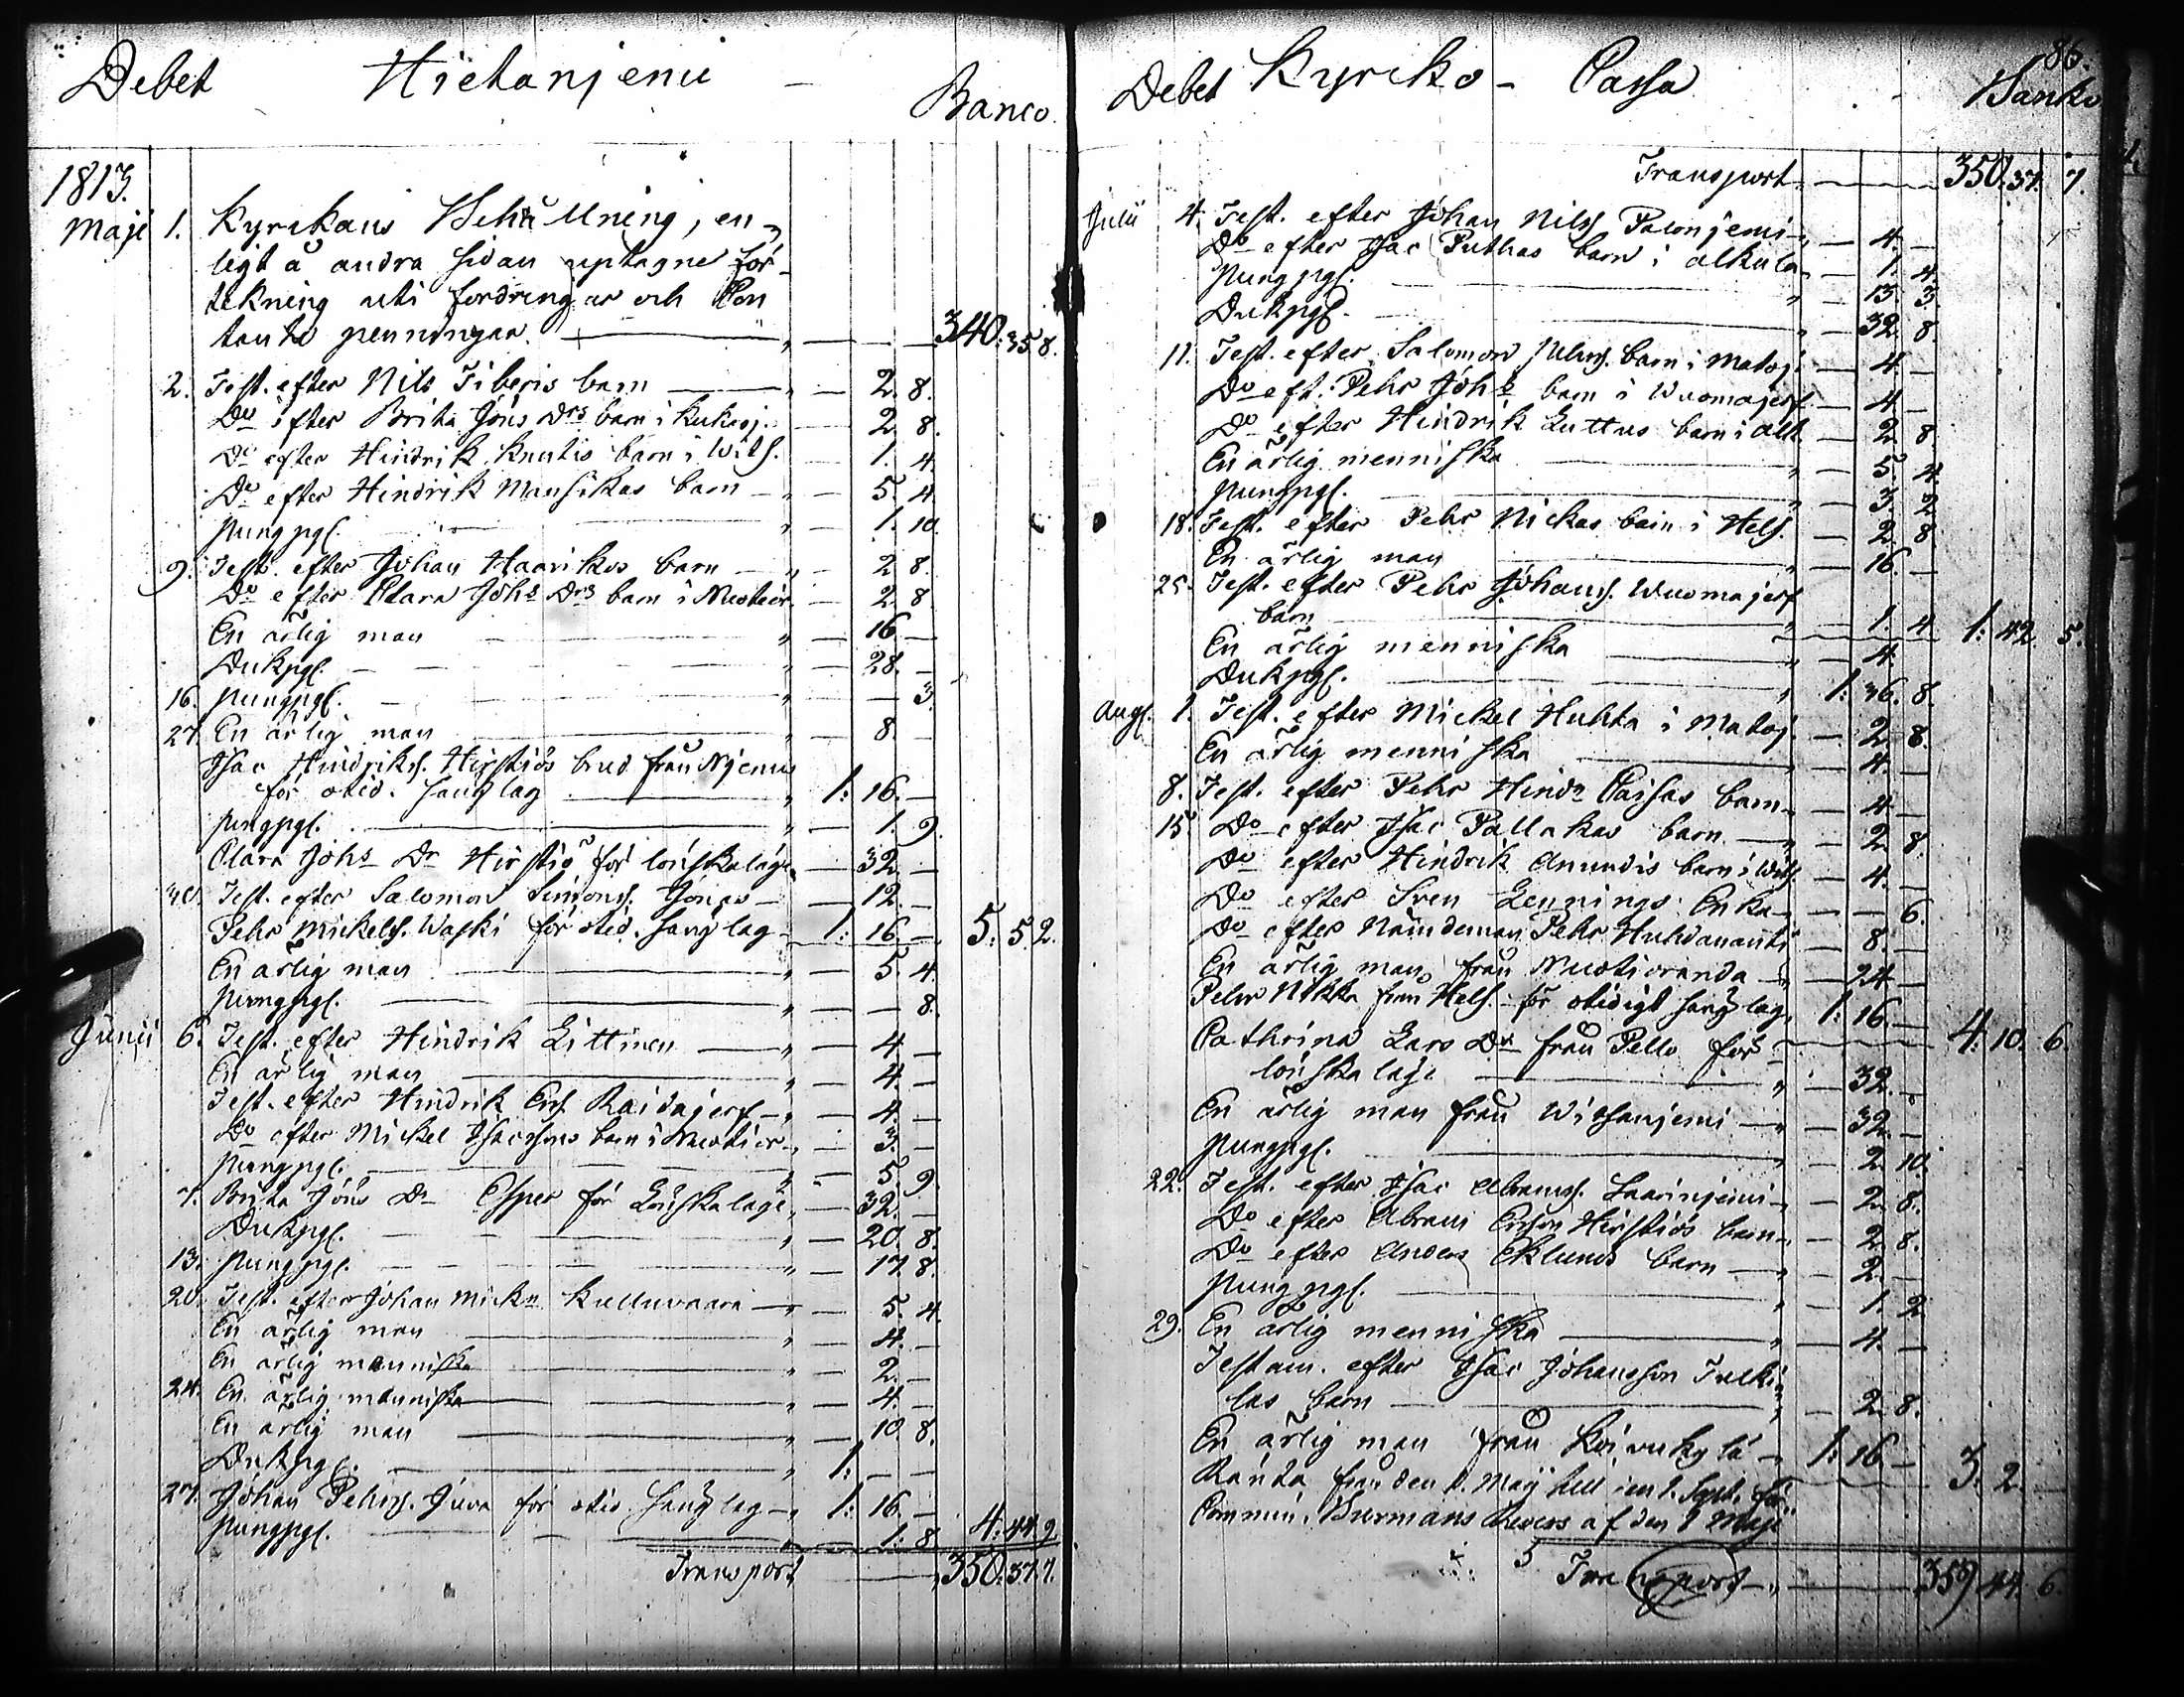 Debet Hietanjemi - Banco.
1813.
Maji 1. Kyrckans Behållning, en-
ligt å andra sidan uptagne för-
tekning uti fordringar och Con
tanta penningar. — 340. 35 8.
2. Test. efter Nils Tiberis barn — 2. 8.
Do efter Brita Jöns Drs barn i Kukasj. — 2. 8.
Do efter Hindrik Knutis barn i Wits. — 1. 4.
Do efter Hindrik Mansikas barn — 5. 4.
pungpgr. — 1. 10.
9. Test. efter Johan Haarikos barn — 2. 8.
Do efter Clara Johs Drs barn i Nuotior. — 2. 8
En ärlig man — 16. —
Dukpgr. — 28. —
16. pungpgr. — 3.
27. En ärlig man — 8. —
Isac Hindrikss. Hirstiös brud från Njemis
för otid. sänglag — 1: 16. —
pungpgr. — 1. 9.
Clara Johs Dr Hirstiö för lönskaläge — 32. —
30. Test. efter Salomon Simonss. — 12. —
Pehr Mickelss. Waski för otid. sänglag — 1: 16. — 5. 5 2.
En ärlig man — 5. 4.
pungpgr. — 8.
Junii 6. Test. efter Hindrik Littinen — 4. —
En ärlig man — 4. —
Test. efter Hindrik Ers. Raidajerf — 4. —
Do efter Mickel Isacssons barn i Nuotior. — 3. —
pungpgr. — 5. 9.
7. Brita Jöns Dr Esper för Lönskaläge, — 32. —
Dukpgr. — 20. 8.
13. pungpgr. — 17. 8.
20. Test. efter Johan Mickn Kulluvaara — 5. 4.
En ärlig man — 4. —
En ärlig menniska — 2. —
24. En ärlig menniska — 4. —
En ärlig man — 10. 8.
Dukpgr. — 1: — —
27. Johan Pehrss. Juva för otid. sänglag — 1: 16. —
pungpgr. — 1. 8. 4. 44. 9.
Transport — 350. 37. 7.
86.
Debet Kyrcko- Cassa - Banko
Transport — 350. 37. 7.
Julii 4. Test. efter Johan Nilss Palonjemi — 4. —
Do efter Isac Puthas barn i Alkula — 1. 4.
pungpgr. — 13. 3.
Dukpgr. — 32. 8.
11. Test. efter Salomon barn i Matoj. — 4. —
Do eft. Pehr Johs barn i Wuomajerf — 4. —
Do efter Hindrik Luttus barn i Alk. — 2. 8.
En ärlig menniska — 5. 4.
pungpgr. — 3. 2.
18. Test. efter Pehr Nickas barn i Hels. — 2. 8.
En ärlig man — 16. —
25. Test. efter Pehr Johanss. Wuomajerf
barn — 1. 4. 1: 42. 5.
En ärlig menniska — 4.
Dukpgr. — 1: 36. 8.
Augs. 1. Test. efter Mickel Huhta i Matoj. — 2. 8.
En ärlig menniska — 4. —
8. Test. efter Pehr Hindr Paisas barn — 4. —
15. Do efter Isac Pallakas barn — 2. 8.
Do efter Hindrik Anundis barn i Wits. — 4. —
Do efter Sven Lennings Enka — 6.
Do efter Nämdeman Pehr Huhdananti — 8. —
En ärlig man från Nuotioranda — 24. —
Pehr Nikka från Hels. för otidigt sänglag, 1: 16. —
Cathrina Lars Dr från Pello för — 4. 10. 6
lönskaläge — 32. —
En ärlig man från Witsanjemi — 32. —
pungpgr. — 2. 10.
22. Test. efter Isac Abramss. Saarinjemi — 2. 8.
Do efter Abram Erssons Hirstiös barn — 2. 8.
Do efter Anders Eklunds barn — 2. —
pungpgr. — 1. 2.
29. En ärlig menniska — 4. —
Testam. efter Isac Johansson Tulki-
las barn — 2. 8.
En ärlig man från Koivukylä — 1: 16. — 3. 2. —
Ränta från den 1. Maji till den 1. Sept. för
Commin. Burmans Revers af den 1 Maji
Transport — 359. 44. 6.